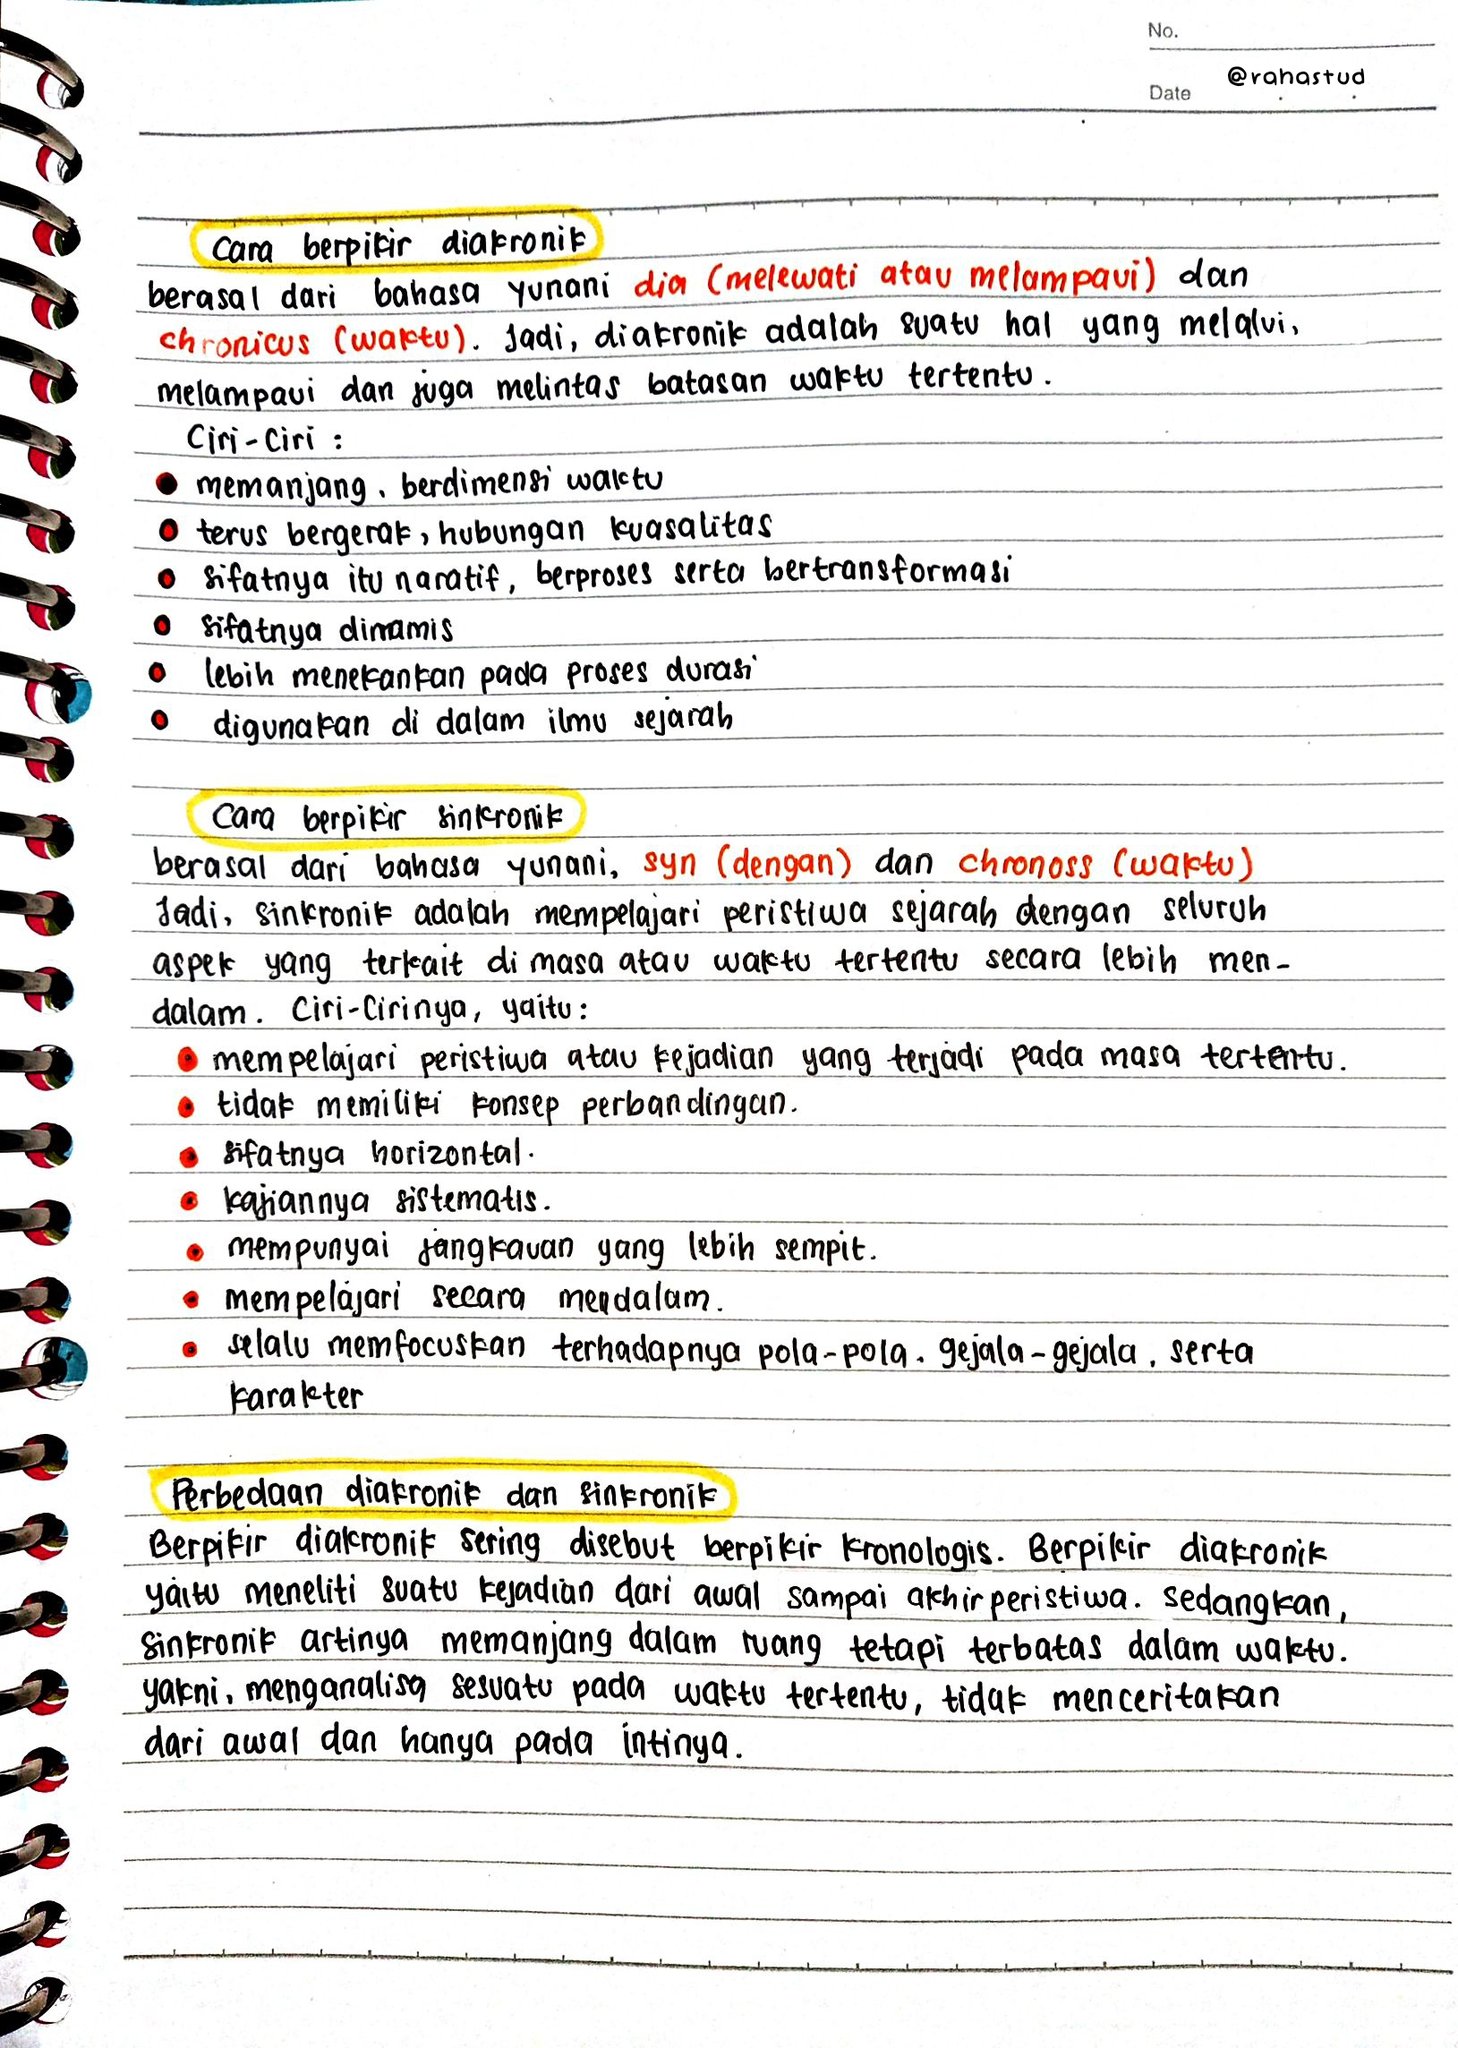 No.
@rahastud
Date
Cara berpikir diakronik
berasal dari bahasa yunani dia (melewati atau melampaui) dan
chronicus (waktu). Jadi, diakronik adalah suatu hal yang melalui,
melampaui dan juga melintas batasan waktu tertentu.
Ciri-Ciri :
• memanjang, berdimensi waktu
• terus bergerak, hubungan kuasalitas
• sifatnya itu naratif, berproses serta bertransformasi
• sifatnya dinamis
• lebih menekankan pada proses durasi
• digunakan di dalam ilmu sejarah
Cara berpikir sinkronik
berasal dari bahasa yunani, syn (dengan) dan chronoss (waktu)
Jadi, sinkronik adalah mempelajari peristiwa sejarah dengan seluruh
aspek yang terkait di masa atau waktu tertentu secara lebih men-
dalam. Ciri-Cirinya, yaitu:
• mempelajari peristiwa atau kejadian yang terjadi pada masa tertentu.
• tidak memiliki konsep perbandingan.
• sifatnya horizontal.
• kajiannya sistematis.
• mempunyai jangkauan yang lebih sempit.
• mempelajari secara mendalam.
• selalu memfocuskan terhadapnya pola-pola, gejala-gejala, serta
karakter
Perbedaan diakronik dan sinkronik
Berpikir diakronik sering disebut berpikir kronologis. Berpikir diakronik
yaitu meneliti suatu kejadian dari awal sampai akhir peristiwa. Sedangkan,
sinkronik artinya memanjang dalam ruang tetapi terbatas dalam waktu.
yakni, menganalisa sesuatu pada waktu tertentu, tidak menceritakan
dari awal dan hanya pada intinya.